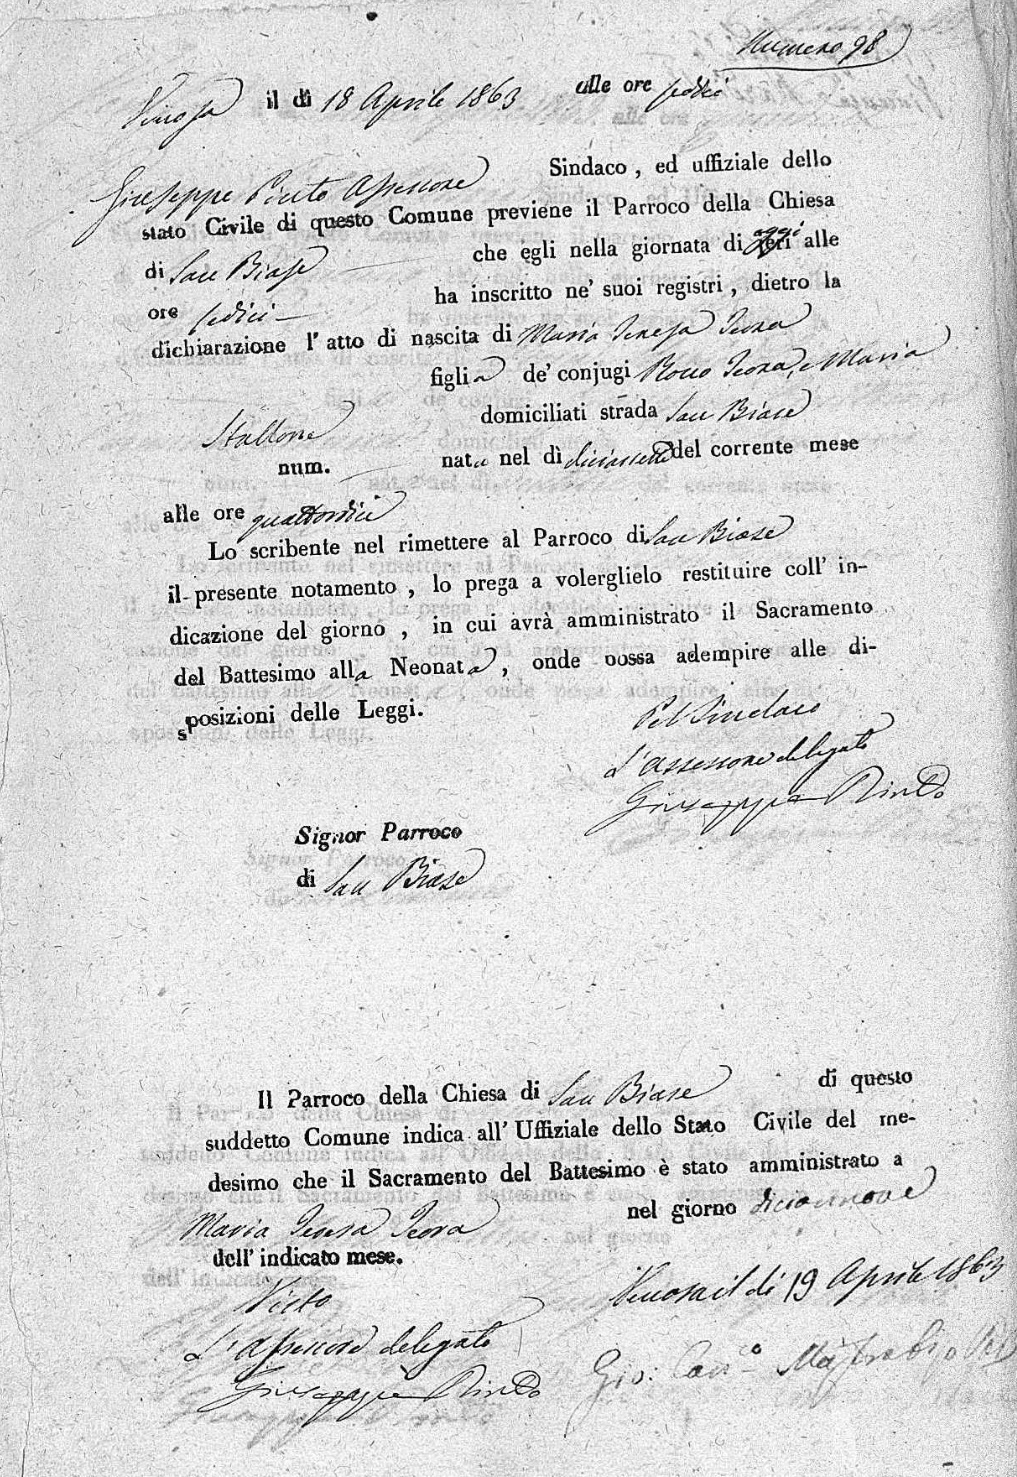 Numero 98
Venosa il dì 18 Aprile 1863 alle ore sedici
Giuseppe Pinto Assessore Sindaco, ed uffiziale dello
stato Civile di questo Comune previene il Parroco della Chiesa
di San Biase che egli nella giornata di oggi alle
ore sedici ha inscritto ne' suoi registri, dietro la
dichiarazione l'atto di nascita di Maria Teresa Teora
figlia de' conjugi Rocco Teora, e Maria
Stallone domiciliati strada San Biase
num. nata nel dì diciassette del corrente mese
alle ore quattordici
Lo scribente nel rimettere al Parroco di San Biase
il presente notamento, lo prega a volerglielo restituire coll' in-
dicazione del giorno, in cui avrà amministrato il Sacramento
del Battesimo alla Neonata, onde possa adempire alle di-
sposizioni delle Leggi.
Pel Sindaco
L'assessore delegato
Giuseppe Pinto
Signor Parroco
di San Biase
Il Parroco della Chiesa di San Biase di questo
suddetto Comune indica all' Uffiziale dello Stato Civile del me-
desimo che il Sacramento del Battesimo è stato amministrato a
Maria Teresa Teora nel giorno diciannove
dell' indicato mese.
Venosa il dì 19 Aprile 1863
Visto
L'assessore delegato
Giuseppe Pinto
Gio: Can.co